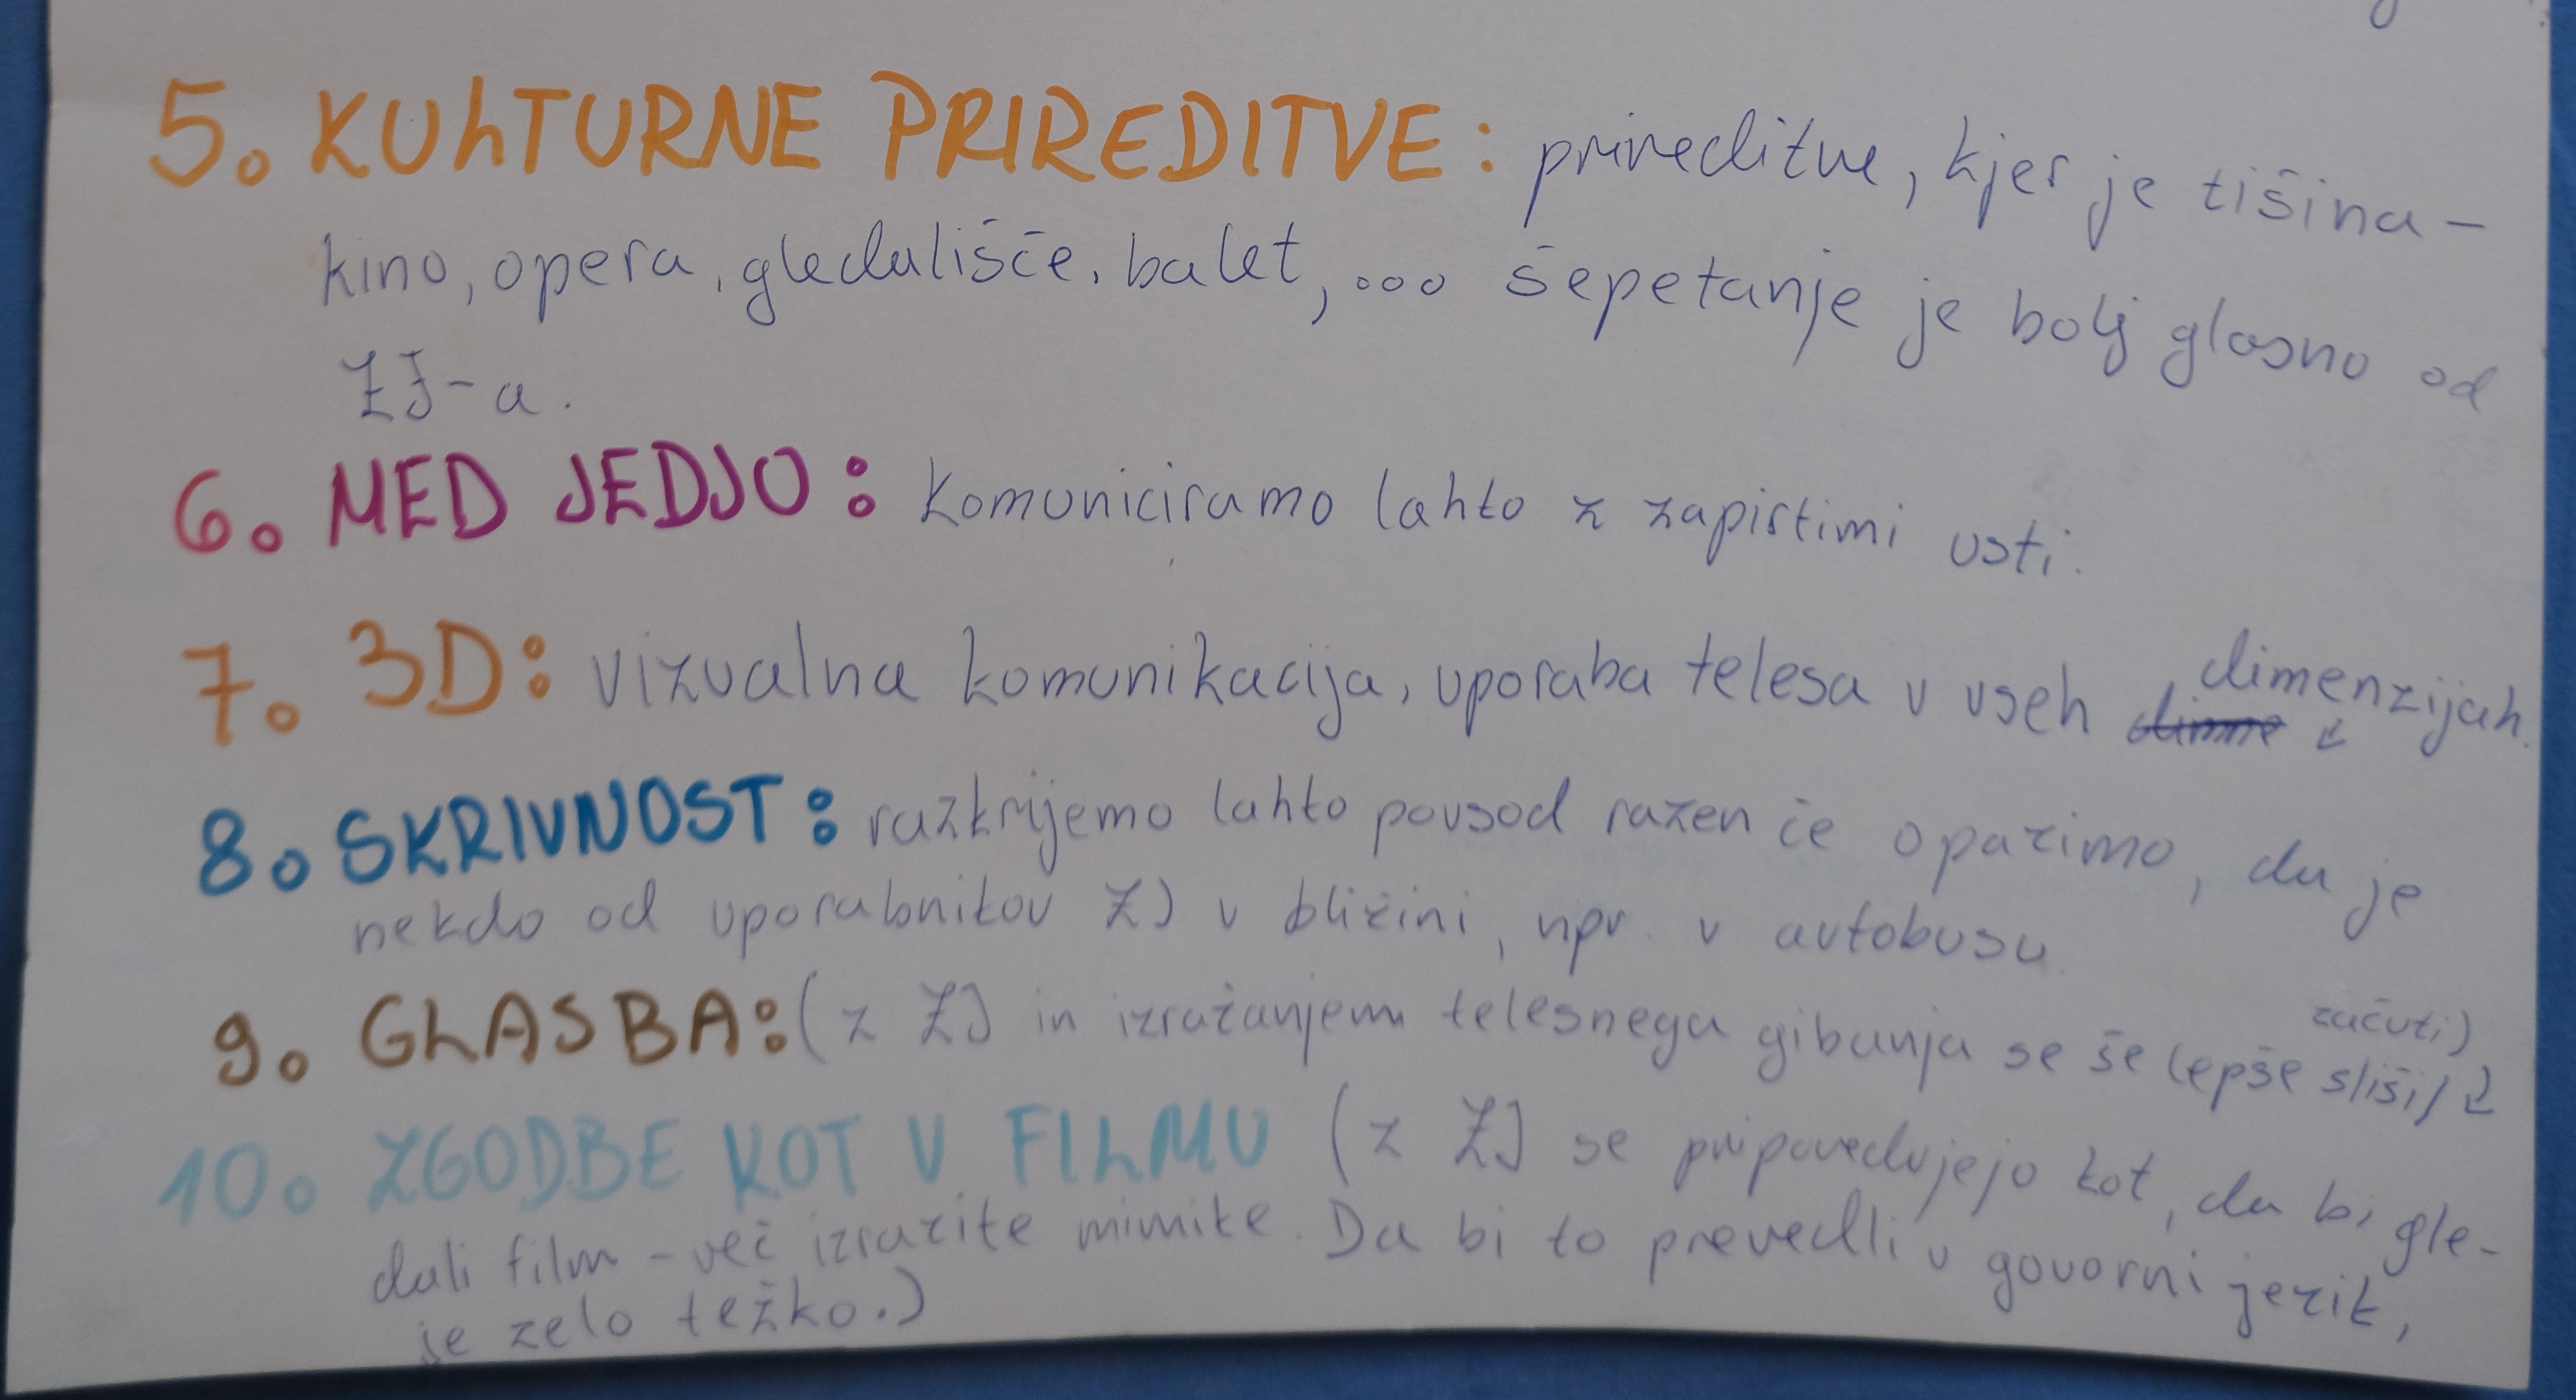 5. KULTURNE PRIREDITVE: prireditve, kjer je tišina -
kino, opera, gledališče, balet, ... šepetanje je bolj glasno od
ŽJ-a.
6. MED JEDJO: komuniciramo lahko z zaprtimi usti.
7. 3D: vizualna komunikacija, uporaba telesa v vseh dimenzijah.
8. SKRIVNOST: razkrijemo lahko povsod razen če opazimo, da je
nekdo od uporabnikov ŽJ v bližini, npr. v avtobusu
9. GLASBA: (z ŽJ in izražanjem telesnega gibanja se še lepše sliši/
začuti)
10. ZGODBE KOT V FILMU (z ŽJ se pripovedujejo kot, da bi gle-
dali film - več izrazite mimike. Da bi to prevedli v govorni jezik,
je zelo težko.)